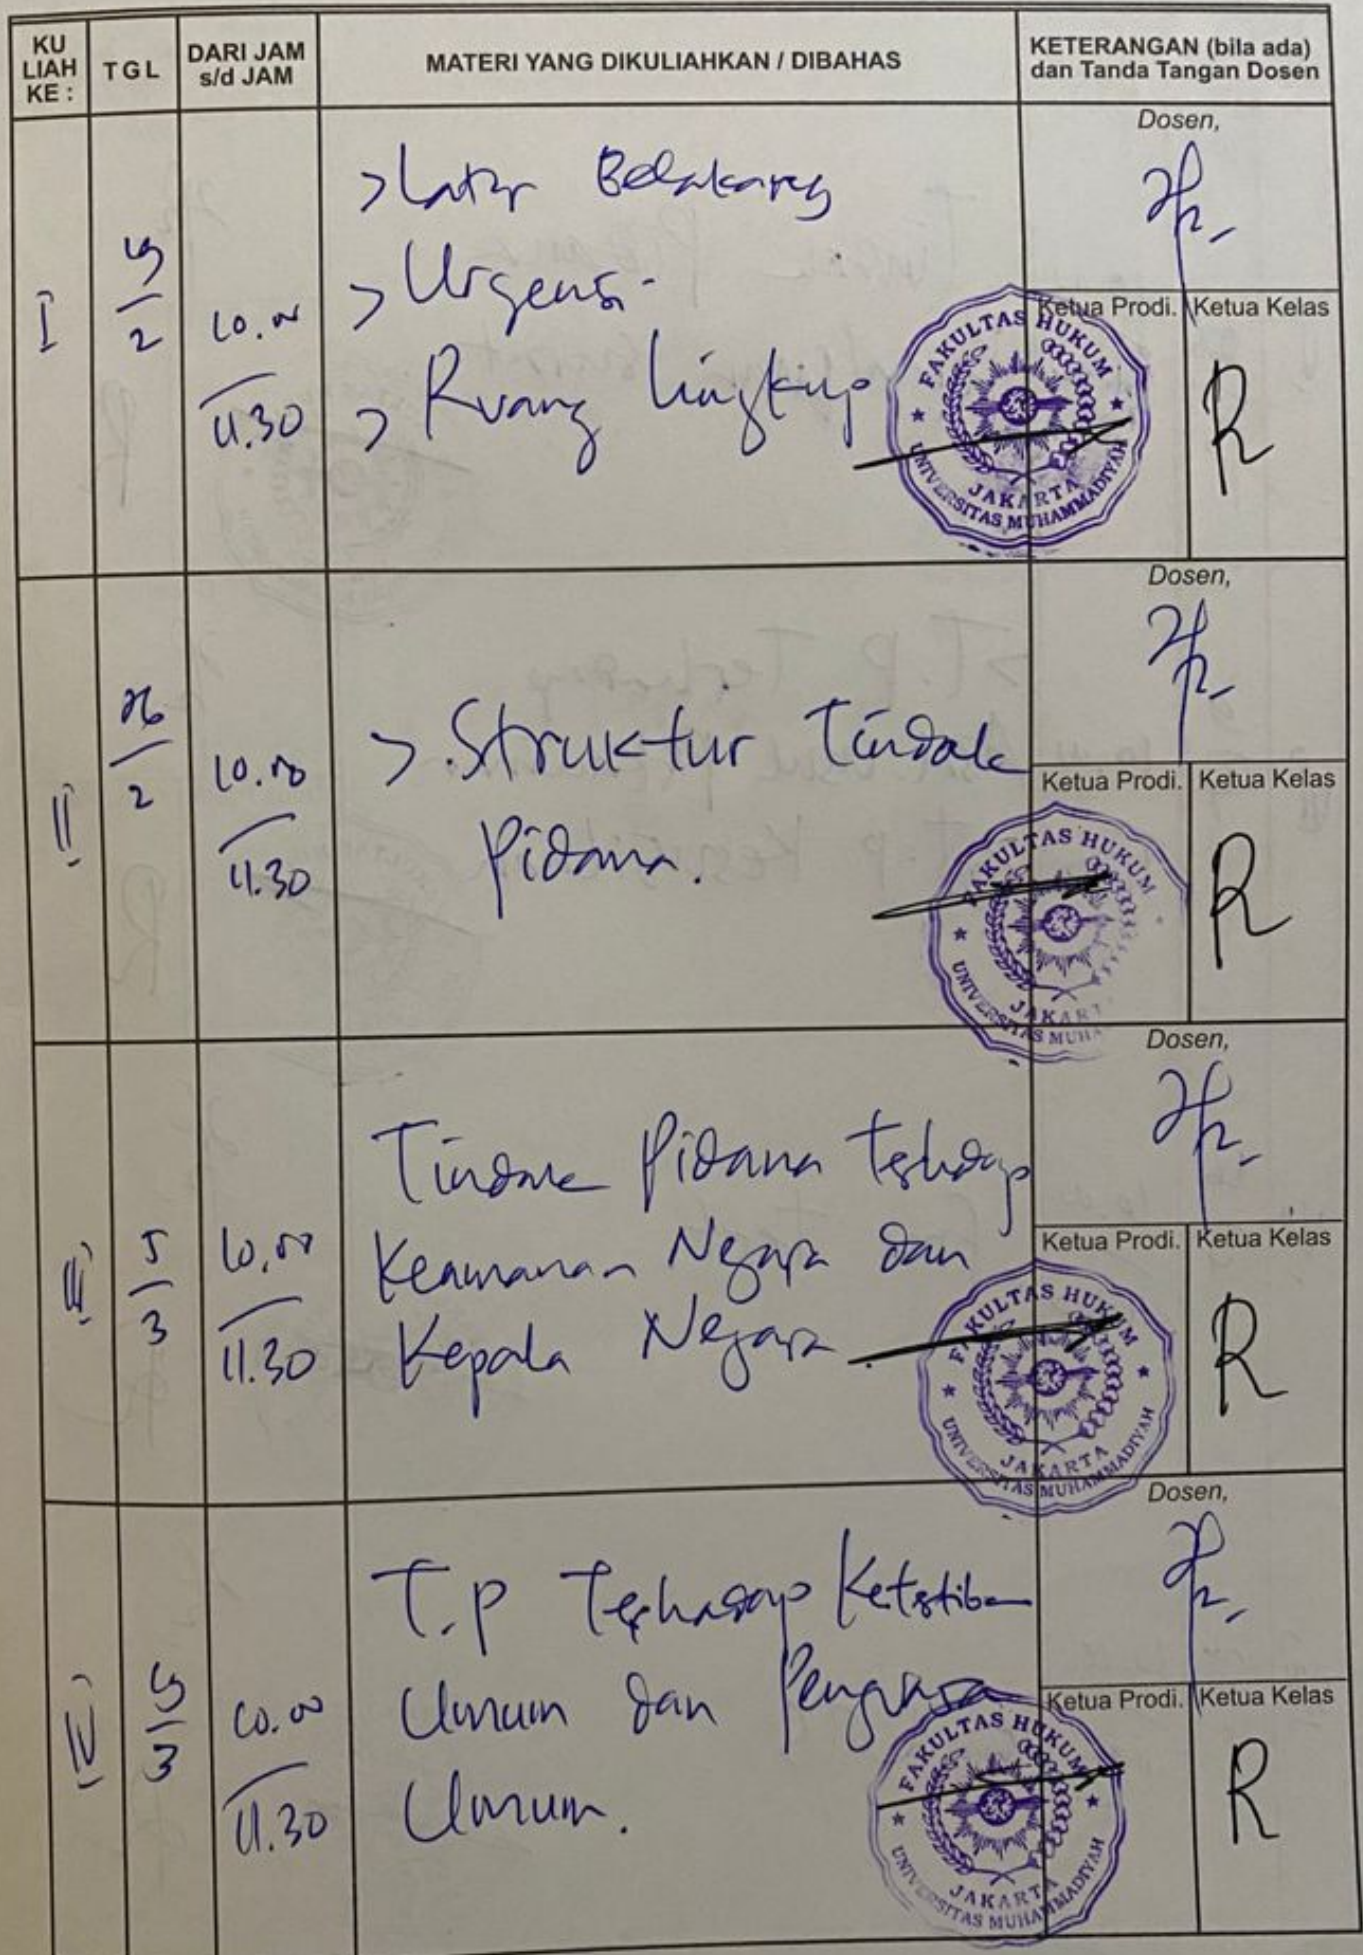 KU
LIAH
KE :
TGL
DARI JAM
s/d JAM
MATERI YANG DIKULIAHKAN / DIBAHAS
KETERANGAN (bila ada)
dan Tanda Tangan Dosen
I
19
2
10.00
11.30
> Latar Belakang
> Urgensi
> Ruang Lingkup
Dosen,
Ketua Prodi.
Ketua Kelas
R
FAKULTAS HUKUM
UNIVERSITAS MUHAMMADIYAH
JAKARTA
II
26
2
10.00
11.30
> Struktur Tindak
Pidana.
Dosen,
Ketua Prodi.
Ketua Kelas
R
FAKULTAS HUKUM
JAKAR
III
5
3
10.00
11.30
Tindak Pidana Terhadap
Keamanan Negara dan
Kepala Negara
Dosen,
Ketua Prodi.
Ketua Kelas
R
FAKULTAS HUKUM
UNIVERSITAS MUHAMMADIYAH
JAKARTA
IV
3
10.00
11.30
T.p Terhadap Ketertiban
Umum dan Penguasa
Umum.
Dosen,
Ketua Prodi.
Ketua Kelas
R
FAKULTAS HUKUM
UNIVERSITAS MUHAMMADIYAH
JAKARTA